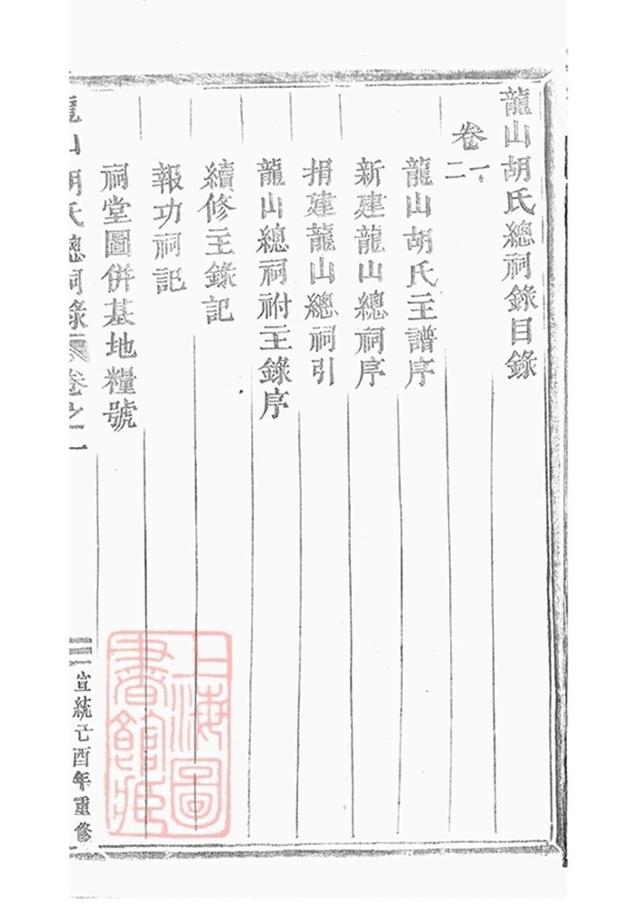 龍山胡氏總祠錄目錄
卷一二
龍山胡氏主譜序
新建龍山總祠序
捐建龍山總祠引
龍山總祠祔主錄序
續修主錄記
報功祠記
祠堂圖併基地糧號
龍山胡氏總祠錄
卷之一二
宣統己酉年重修
上海圖書館藏